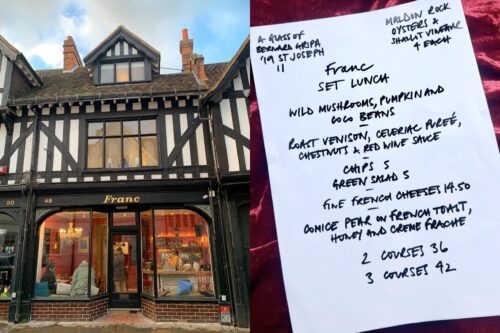 50
49
Franc
A GLASS OF
BERNARD GRIPA
'19 ST JOSEPH
11
MALDON ROCK
OYSTERS &
SHALLOT VINEGAR
4 EACH
Franc
SET LUNCH
WILD MUSHROOMS, PUMPKIN AND
COCO BEANS
ROAST VENISON, CELERIAC PURÉE,
CHESTNUTS & RED WINE SAUCE
CHIPS 5
GREEN SALAD 5
FINE FRENCH CHEESES 14.50
COMICE PEAR IN FRENCH TOAST,
HONEY AND CREME FRAICHE
2 COURSES 36
3 COURSES 42